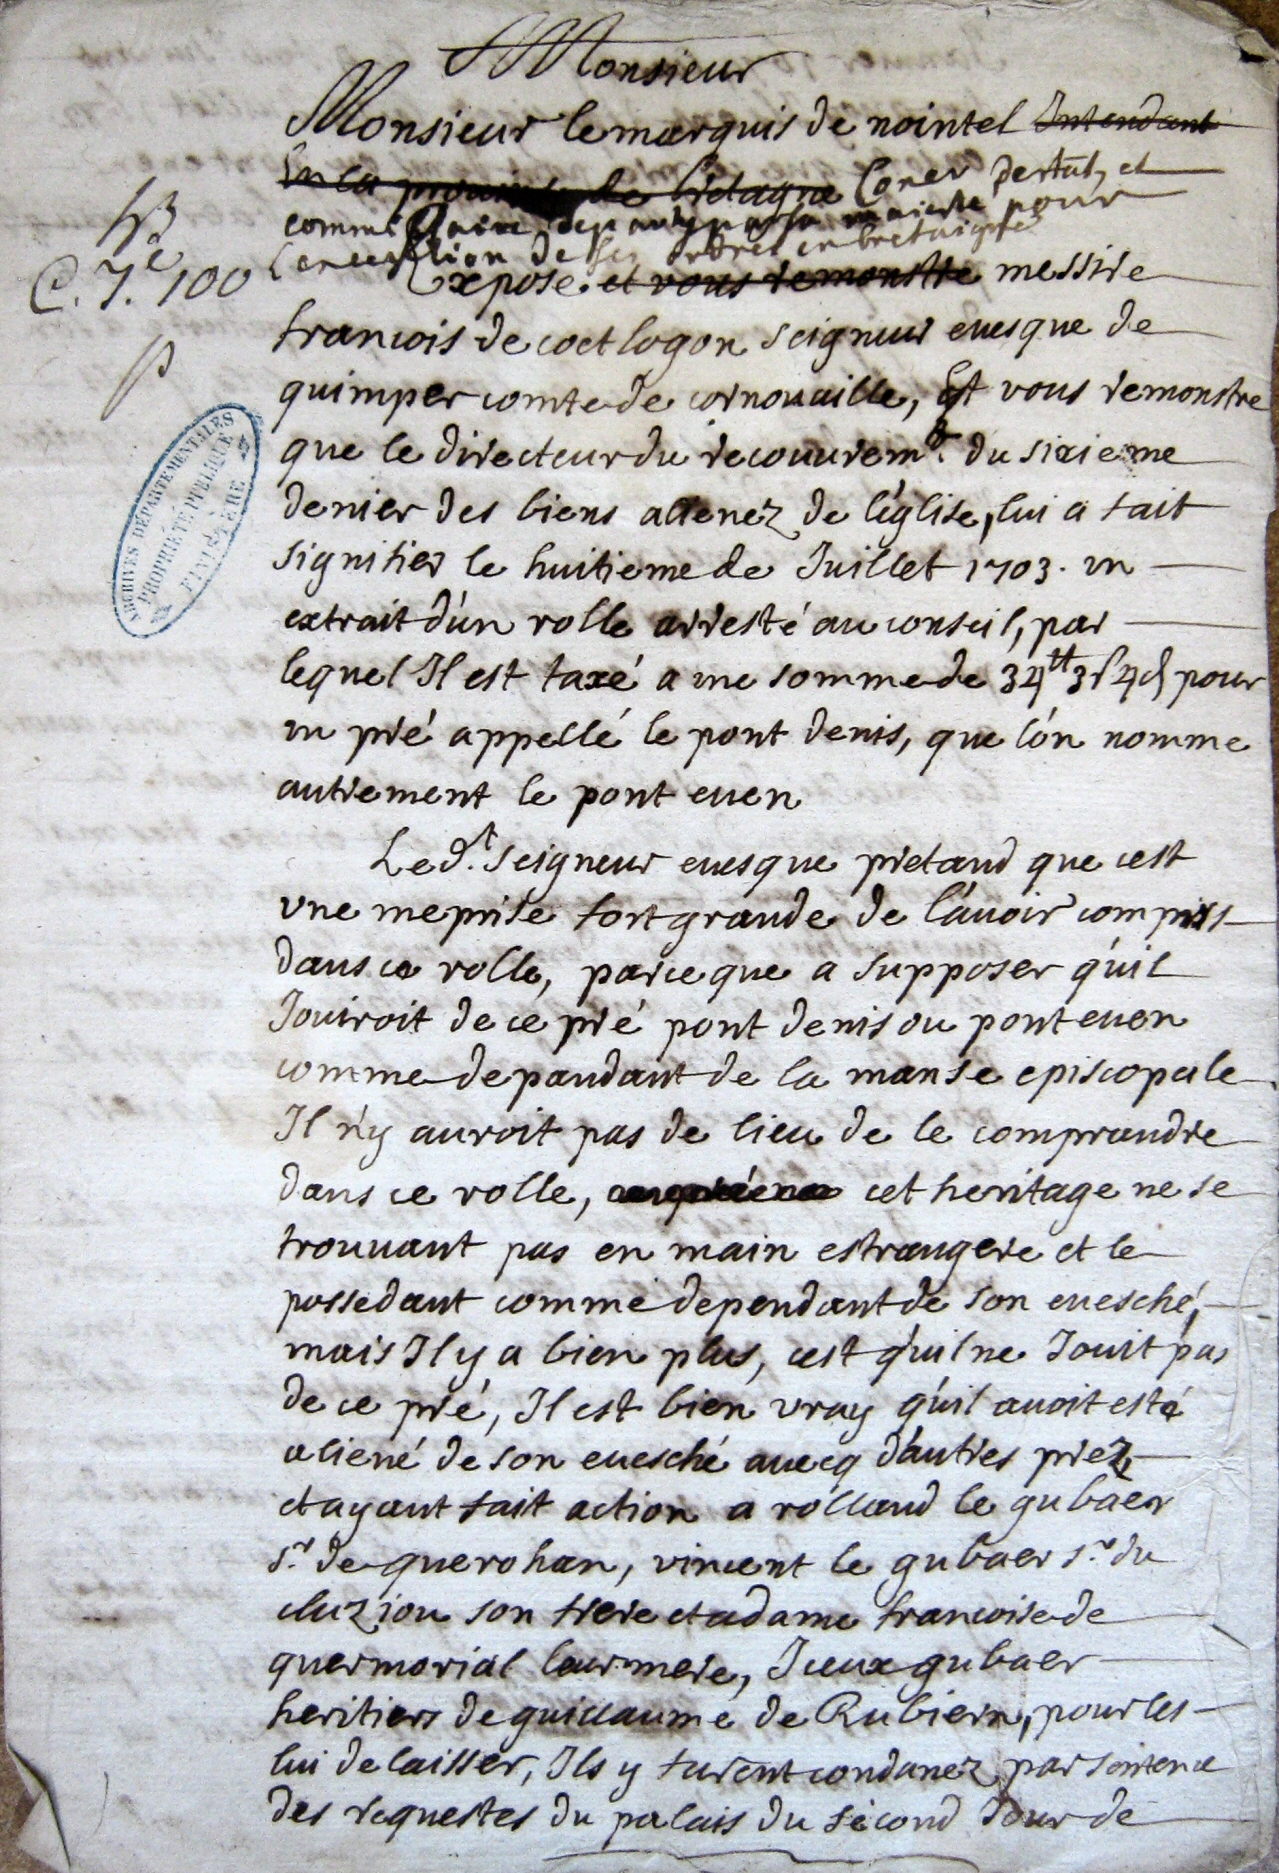 Monsieur
Monsieur le marquis de nointel Intendant
En la province de bretagne Coner destat, et
commissaire departy par sa maieste pour
l'execution de ses ordres en bretaigne
Expose. et vous remonstre messire
francois de coetlogon seigneur euesque de
quimper comte de cornouaille, Et vous remonstre
que le directeur du recouuremt. du sixieme
denier des biens alienez de l'église, lui a fait
signifier le huitieme de Juillet 1703. un
extrait d'un rolle arresté au conseil, par
lequel Il est taxé a une somme de 34tt 3s 4d pour
un pré appellé le pont denis, que l'on nomme
autrement le pont euen
Led.t seigneur euesque pretand que cest
vne meprise fort grande de l'auoir compris
dans ce rolle, parce que a supposer qu'il
Jouiroit de ce pré pont denis ou pont euen
comme depandant de la manse episcopale
Il n'y auroit pas de lieu de le comprandre
dans ce rolle, cet heritage ne se
trouuant pas en main estrangere et le
possedant comme dependant de son euesché,
mais Il y a bien plus, cest qu'il ne Jouit pas
de ce pré, Il est bien vray qu'il auoit esté
aliené de son euesché auecq d'autres prez,
et ayant fait action a rolland le gubaer
sr. de querohan, vincent le gubaer sr. du
cluziou son frere et a dame francoise de
quermorial leur mere, Iceux gubaer
heritiers de guillaume de Rubiern, pour les
lui delaisser, Ils y furent condanez par sentence
des requestes du palais du second Jour de
H3
C. 7e. 100
p
ARCHIVES DÉPARTEMENTALES
PROPRIÉTÉ PUBLIQUE
FINISTÈRE